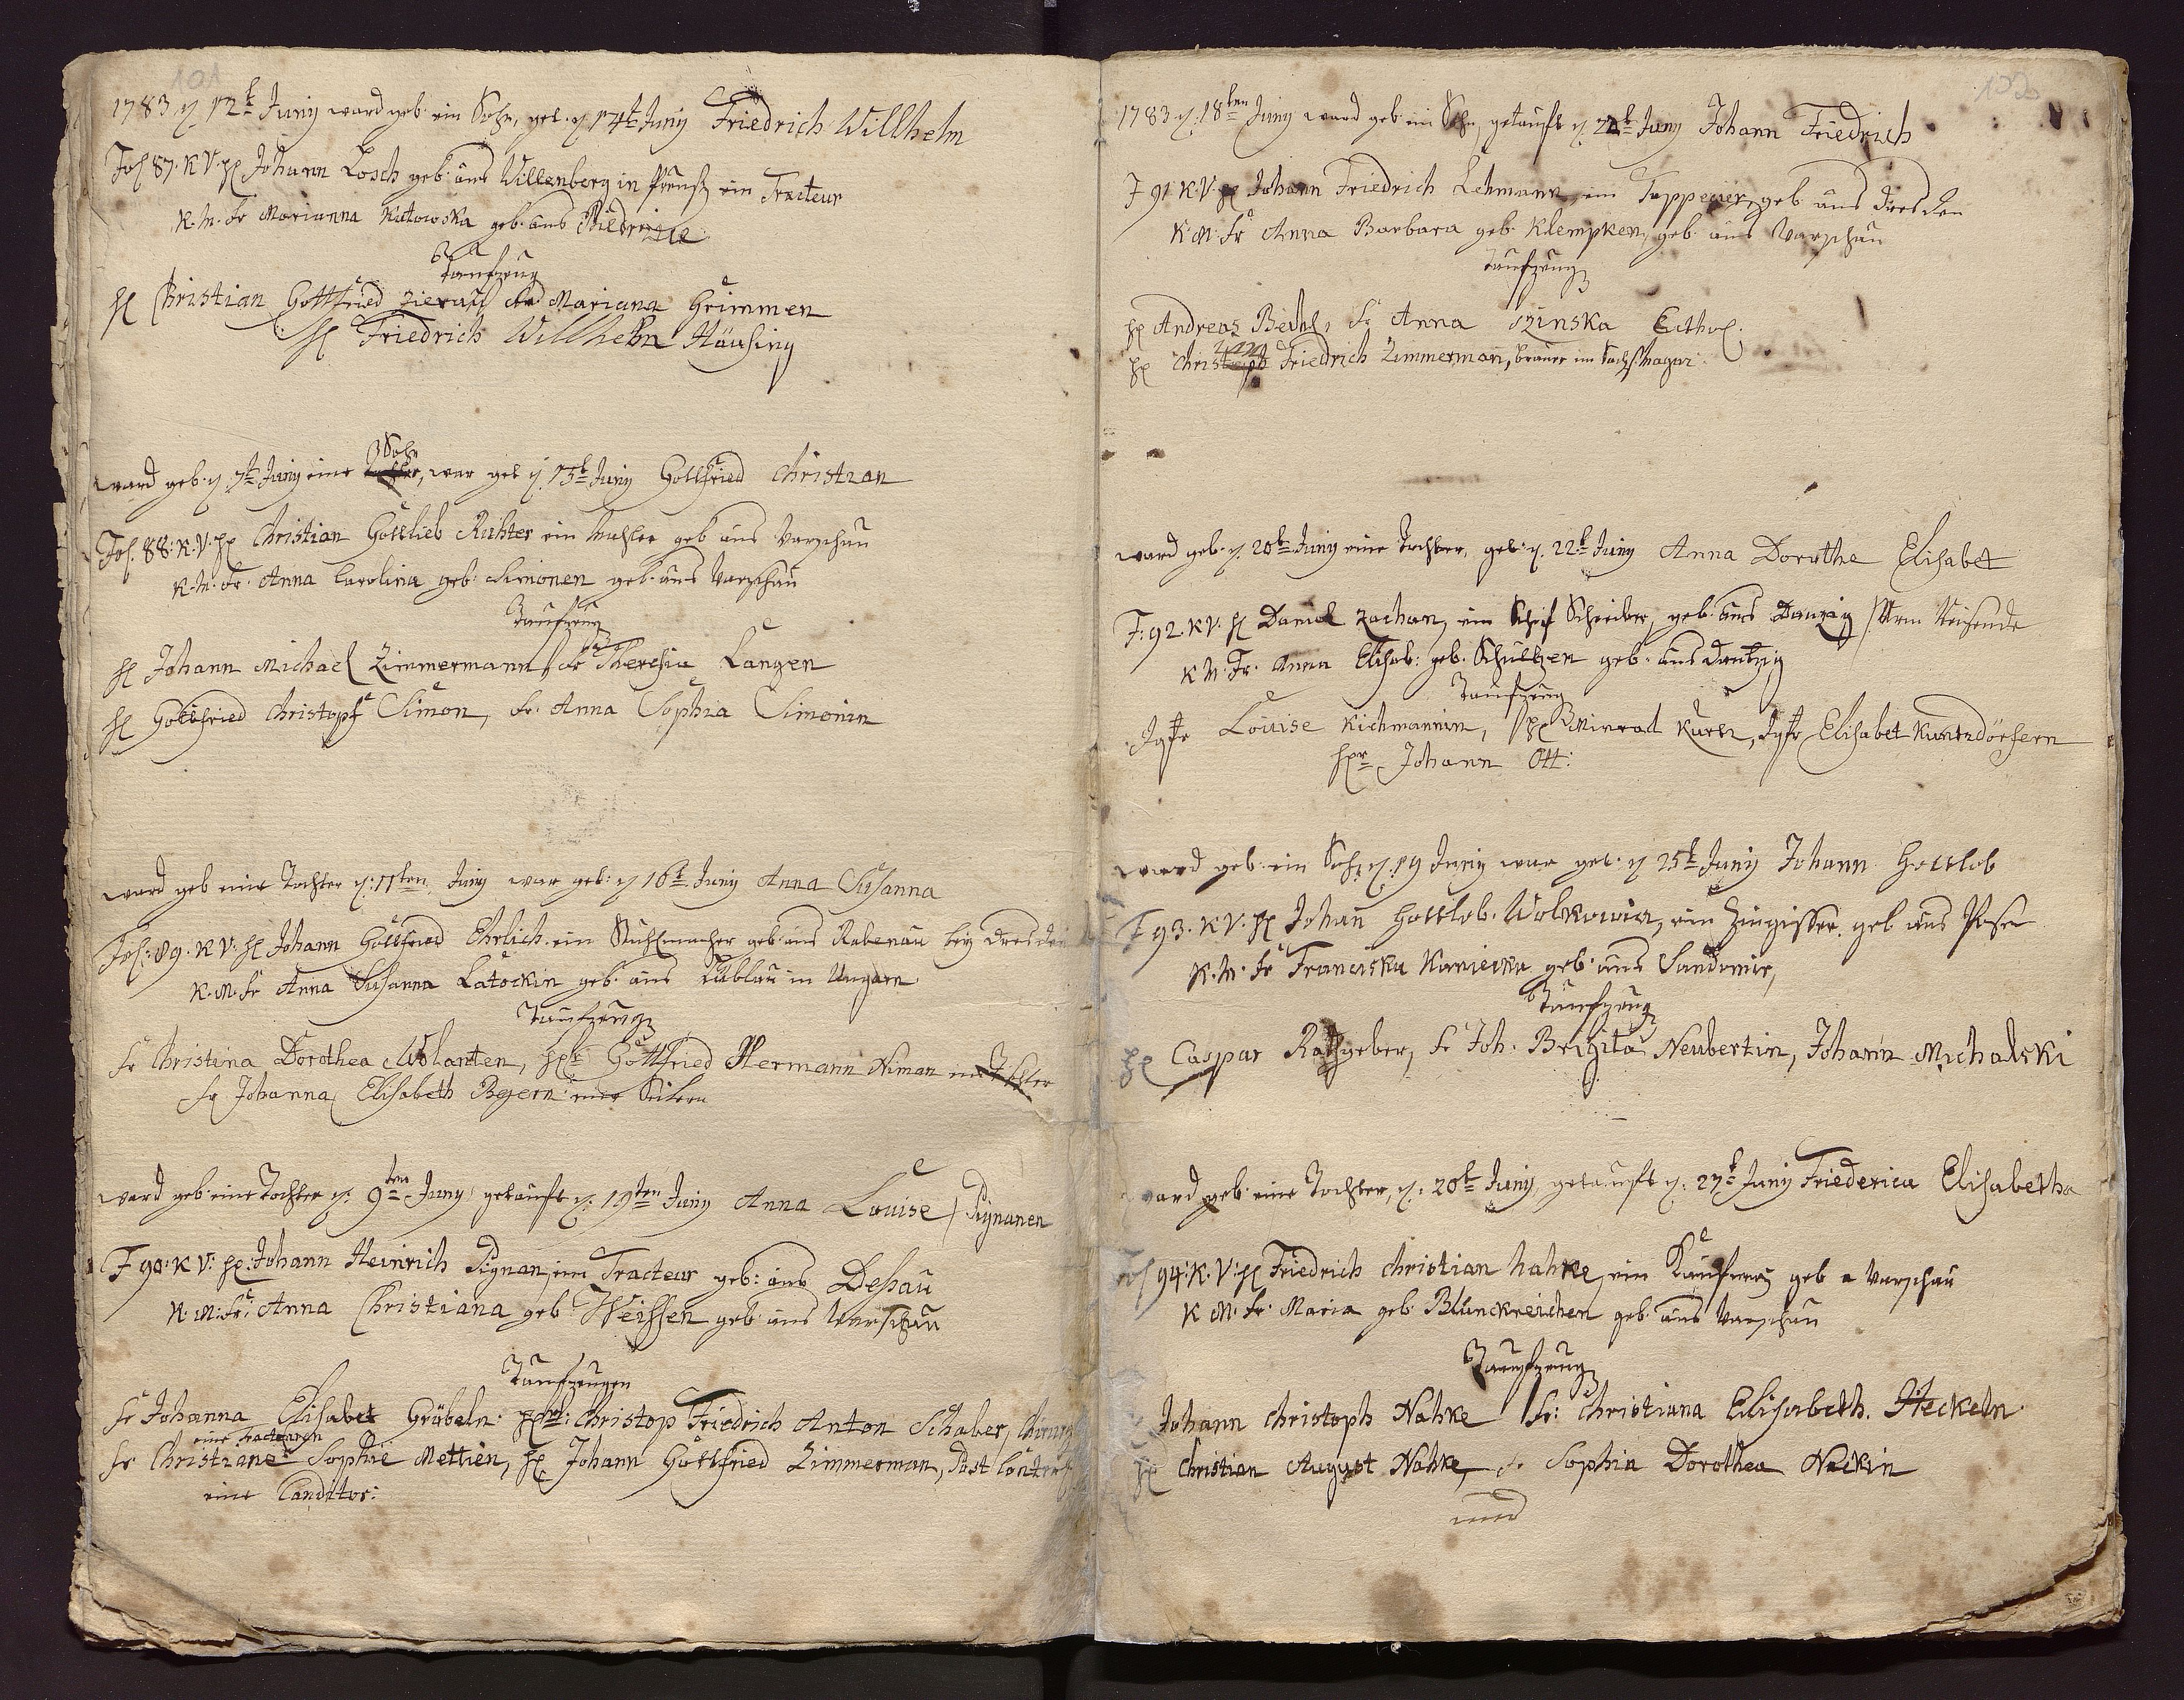 101
1783 d. 12t Juny ward geb. ein Sohn, get. d. 14t Juny Friedrich Willhelm
Fol 87. K V. H Johann Losch geb. aus Willenberg in Preuß ein Tracteur
K. M. Fr Marianna Kutowska geb. aus
Taufzeug
H Christian Gottfried Zierauf Fr Mariana Grimmen
H Friedrich Willhelm Häusing
ward geb. d. 7t Juny eine Sohn, war get d. 15t Juny Gottfried Christian
Fol. 88. K. V. H Christian Gottlieb Richter ein Mahler geb aus Varschau
K. M. Fr. Anna Carolina geb. Simonen geb. aus Varschau
Taufzeug
H Johann Michael Zimmermann Fr Theresia Langen
H Gottfried Christoph Simon, Fr. Anna Sophia Simonin
ward geb eine Tochter d. 11ten Juny war get: d 16t Juny Anna Susanna
Fol: 89. K V: H Johann Gottfried Ehrlich ein Stuhlmacher geb aus Rabenau bey Dresden
K. M. Fr Anna Susanna Latockin geb. aus Lublau in Ungarn
Taufzeug
Fr Christina Dorothea Wolanten, H Gottfried Hermann Niman
Fr Johanna Elisabeth Beyern eine
ward geb eine Tochter d: 9ten Juny getauft d: 19ten Juny Anna Louise Pignanen
F 90. K V: H: Johann Heinrich Pignan, ein Tracteur geb: aus Dessau
K. M: Fr: Anna Christiana geb Weissen geb aus Varschau
Taufzeugen
Fr Johanna Elisabet Gräbeln: H: Christop Friedrich Anton Schaber, Chirurg
eine Tracteuren
Fr Christiane Sophie Mettien, H Johann Gottfried Zimmerman, Post
eine Canditor:
102
1783 d: 18ten Juny ward geb ein Sohn, getauft d. 22t Juny Johann Friedrich
F 91 K. V. H Johann Friedrich Lehmann ein Tappecier, geb aus Dresden
K. M. Fr Anna Barbara geb. Klempken, geb. aus Varschau
Taufzeug
H Andreas Fr Anna
H Christ Friedrich Zimmerman, Brauer im
ward geb. d. 20t Juny eine Tochter, get. d. 22t Juny Anna Dorothe Elisabet
F: 92. K V. H Daniel Zachan, ein Schreiber, geb. aus Danzig Arm Reisende
K M. Fr. Anna Elisab: geb. Schultzen geb. aus Dantzig
Taufzeug
Jgfr Louise Richmannin, H, Jgfr Elisabet
Hr Johann Ott:
ward geb. ein Sohn d. 19 Juny war get. d 25t Juny Johann Gottlob
F 93. K V. H Johan Gottlob. Wolkowicz, ein Zingisser geb aus Posen
K. M. Fr Franciska Kaniecka geb. aus Sandomir,
Taufzeug
H Caspar Rathgeber, Fr Joh. Brigita Neubertin, Johann Michalski
ward geb. eine Tochter, d. 20t Juny, getauft d. 27t Juny Friederica Elisabetha
Fol 94. K. V. H Friedrich Christian Nahke, ein Kaufman geb a Varschau
K M. Fr. Maria geb. Blunckreichen geb. aus Varschau
Taufzeug
Johann Christoph Nahke Fr: Christiana Elisabeth. Heckeln
H Christian August Nahke, Fr Sophia Dorothea Neckin
und